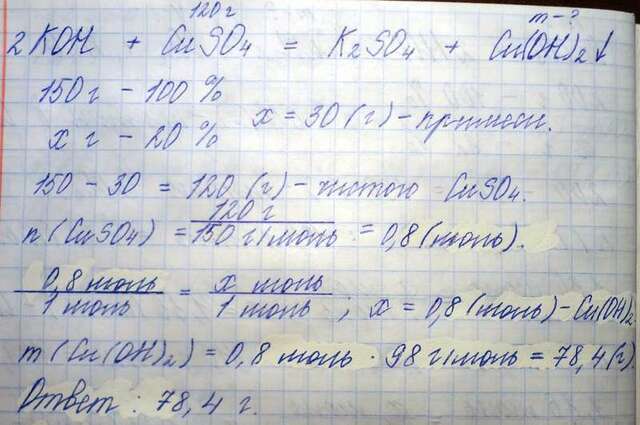 120 г m - ?
2 KOH + CuSO4 = K2SO4 + Cu(OH)2↓
150 г - 100 %
x г - 20 % x = 30 (г) - примеси.
150 - 30 = 120 (г) - чистого CuSO4.
n (CuSO4) = 120 г / 150 г/моль = 0,8 (моль).
0,8 моль / 1 моль = x моль / 1 моль ; x = 0,8 (моль) - Cu(OH)2
m (Cu(OH)2) = 0,8 моль · 98 г/моль = 78,4 (г).
Ответ : 78,4 г.